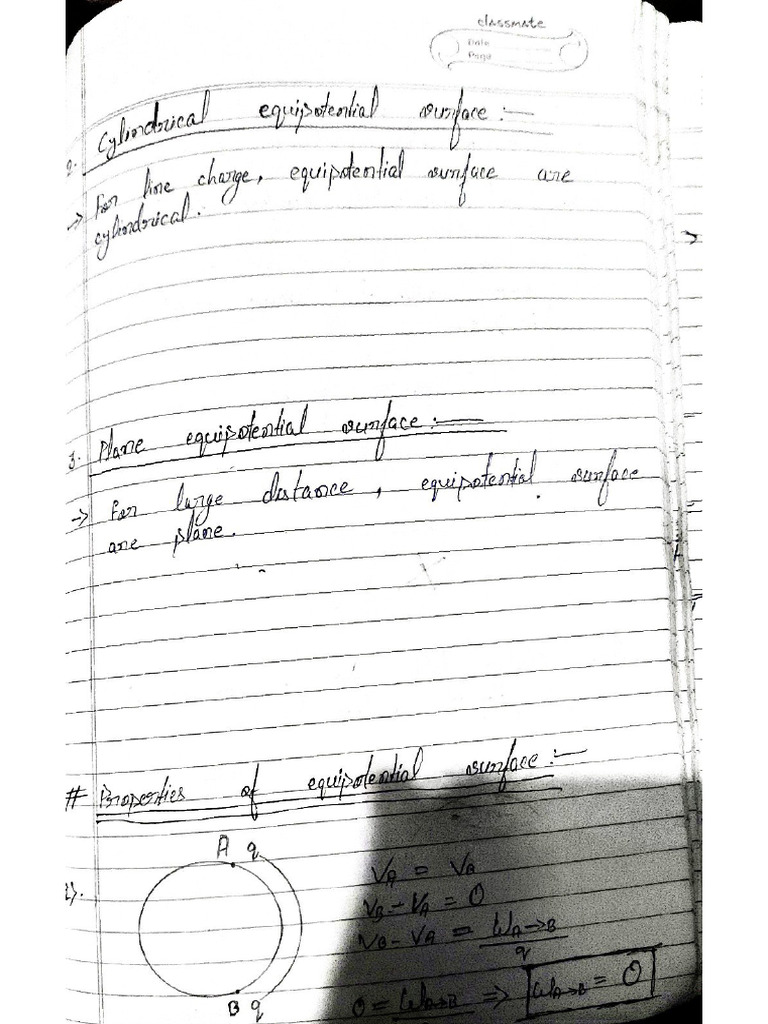 classmate
Date
Page
2. Cylindrical equipotential surface :—
→ For line charge, equipotential surface are
cylindrical.
3. Plane equipotential surface :—
→ For large distance, equipotential surface
are plane.
# Properties of equipotential surface :—
1).
A q
V_A = V_B
V_B - V_A = 0
V_B - V_A = W_A→B / q
B q
0 = W_A→B ⇒ W_A→B = 0